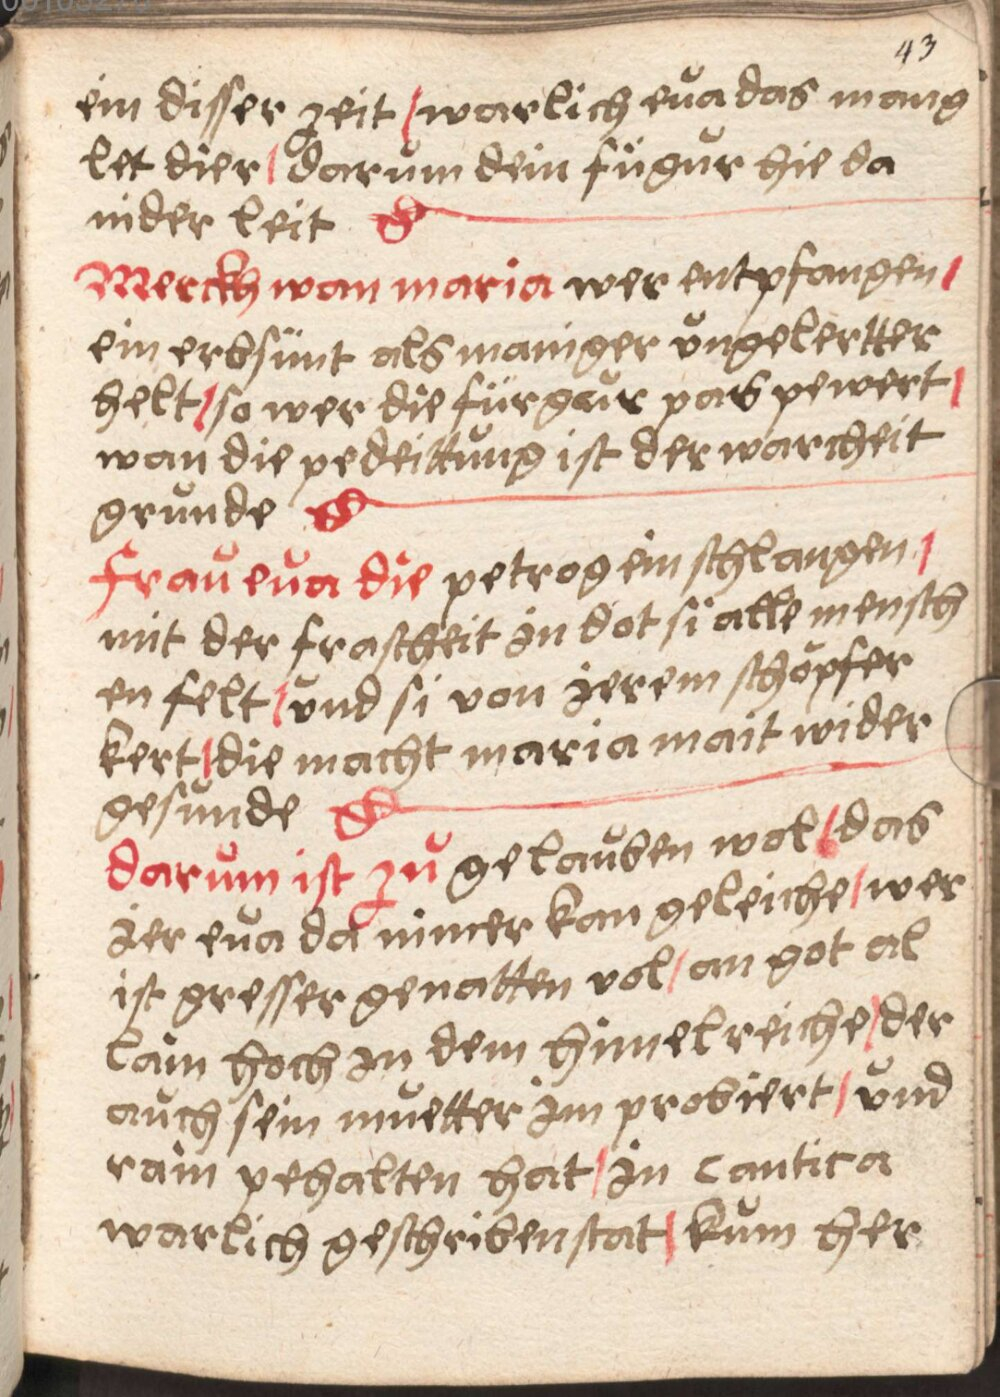 43
ein disser zeit / warlich eua das mang
let dier / darum dein fügur hie da
nider leit
Merckh wan maria wer entpfangen /
ein erbsünt als maniger vngelertter
helt / so wer die fürgur pas pewert /
wan die pedeittung ist der warcheit
grunde
frau eua die petrog ein schlangen /
mit der frascheit in dot si alle mensch
en felt / vnd si von ierem schöpfer
kert / die macht maria mait wider
gesunde
darum ist zu gelauben wol / das
ier eua da nimer kan geleiche / wer
ist gresser genatten vol / an got al
lain hoch in dem himelreiche / der
auch sein muetter im probiert / vnd
rain pehalten hat / in cantica
warlich geschriben stat / kum her